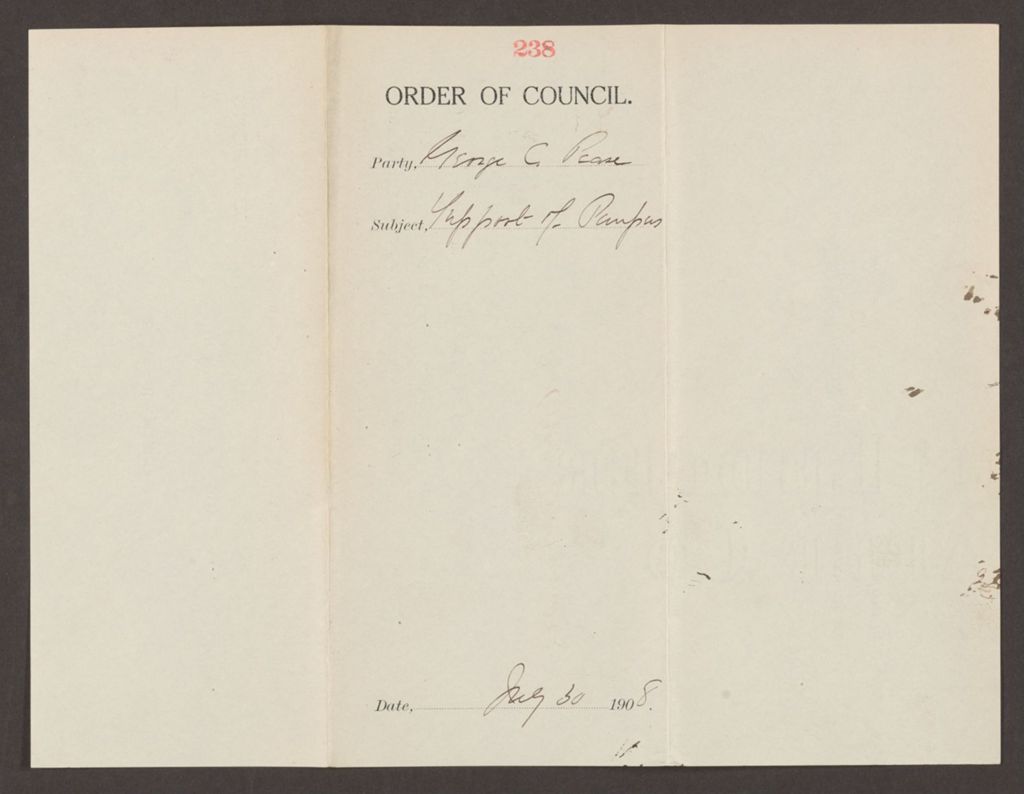 238
ORDER OF COUNCIL.
Party, George C. Pease
Subject, Support of Paupers
Date, July 30 1908.